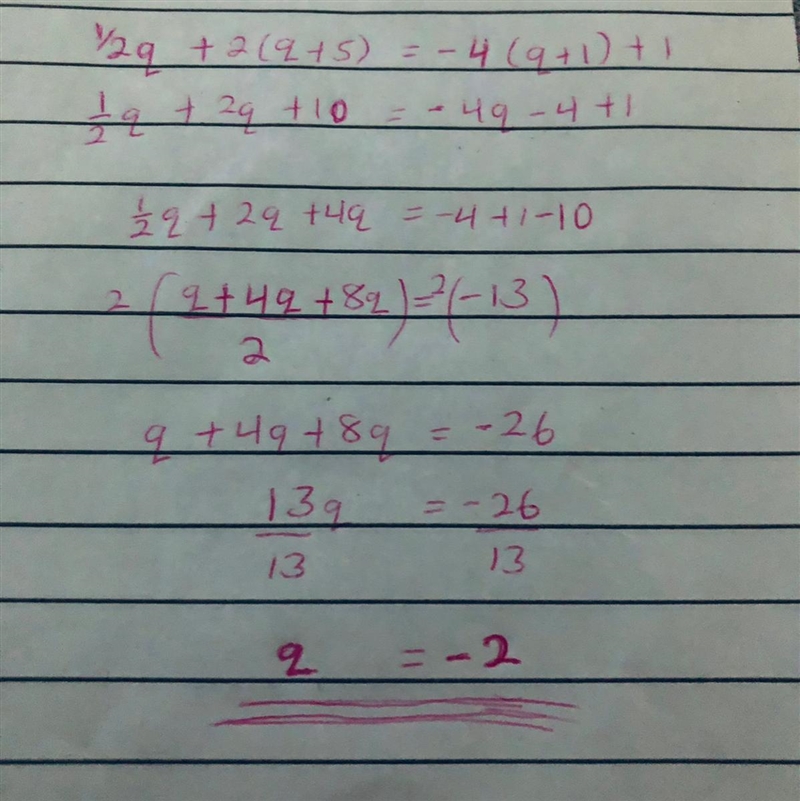 1/2q + 2(q+5) = -4(q+1)+1
1/2 q + 2q +10 = -4q -4 +1
1/2 q + 2q +4q = -4 +1 -10
2 ( (q+4q+8q)/2 ) = 2(-13)
q +4q+8q = -26
13q/13 = -26/13
q = -2